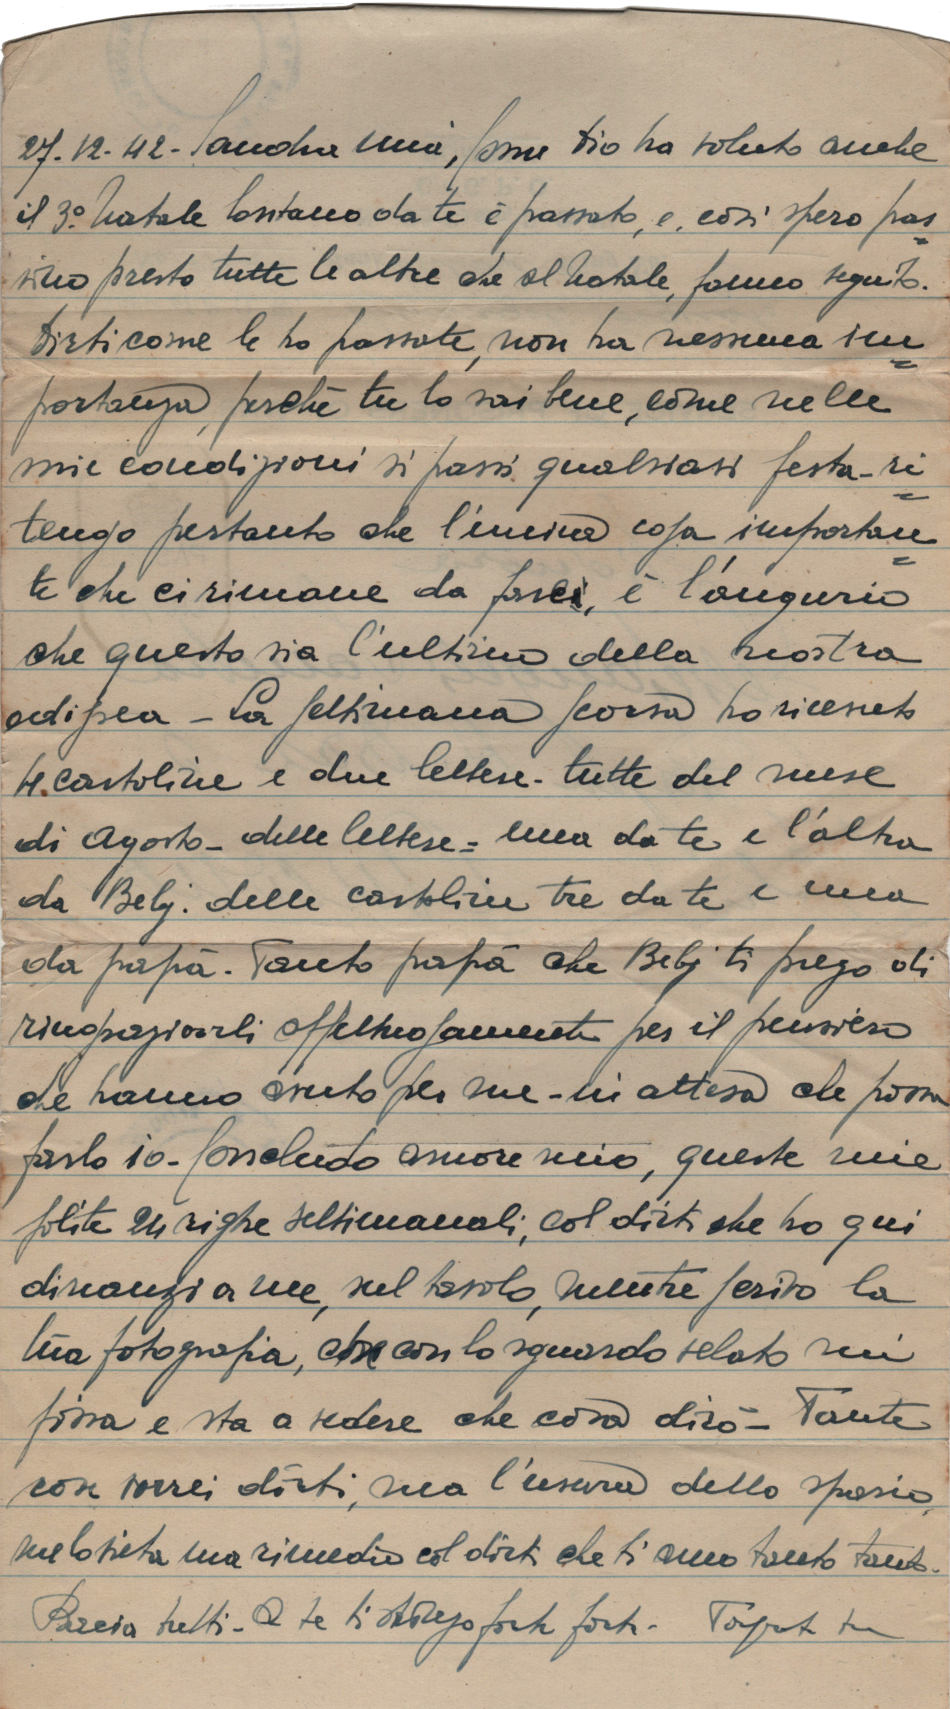 27-12-42- Sandra mia, come Dio ha voluto anche
il 3° Natale lontano da te è passato, e, così spero pas
sino presto tutte le altre che al Natale, fanno seguito.
Dirti come le ho passate, non ha nessuna im
portanza, perchè tu lo sai bene, come nelle
mie condizioni si passi qualsiasi festa- ri
tengo pertanto che l'unica cosa importan
te che ci rimane da farci, è l'augurio
che questo sia l'ultimo della nostra
odissea - La settimana scorsa ho ricevuto
4 cartoline e due lettere- tutte del mese
di Agosto- delle lettere= una da te e l'altra
da Bebj. delle cartoline tre da te e una
da papà. Tanto papà che Bebj ti prego di
ringraziarli affettuosamente per il pensiero
che hanno avuto per me- in attesa che possa
farlo io- Concludo amore mio, queste mie
solite 24 righe settimanali, col dirti che ho qui
dinanzi a me, sul tavolo, mentre scrivo la
tua fotografia, che con lo sguardo velato mi
fissa e sta a vedere che cosa dirò- Tante
cose vorrei dirti, ma l'usura dello spazio,
me lo vieta ma rimedio col dirti che ti amo tanto tanto.
Bacia tutti- A te ti stringo forte forte- tu